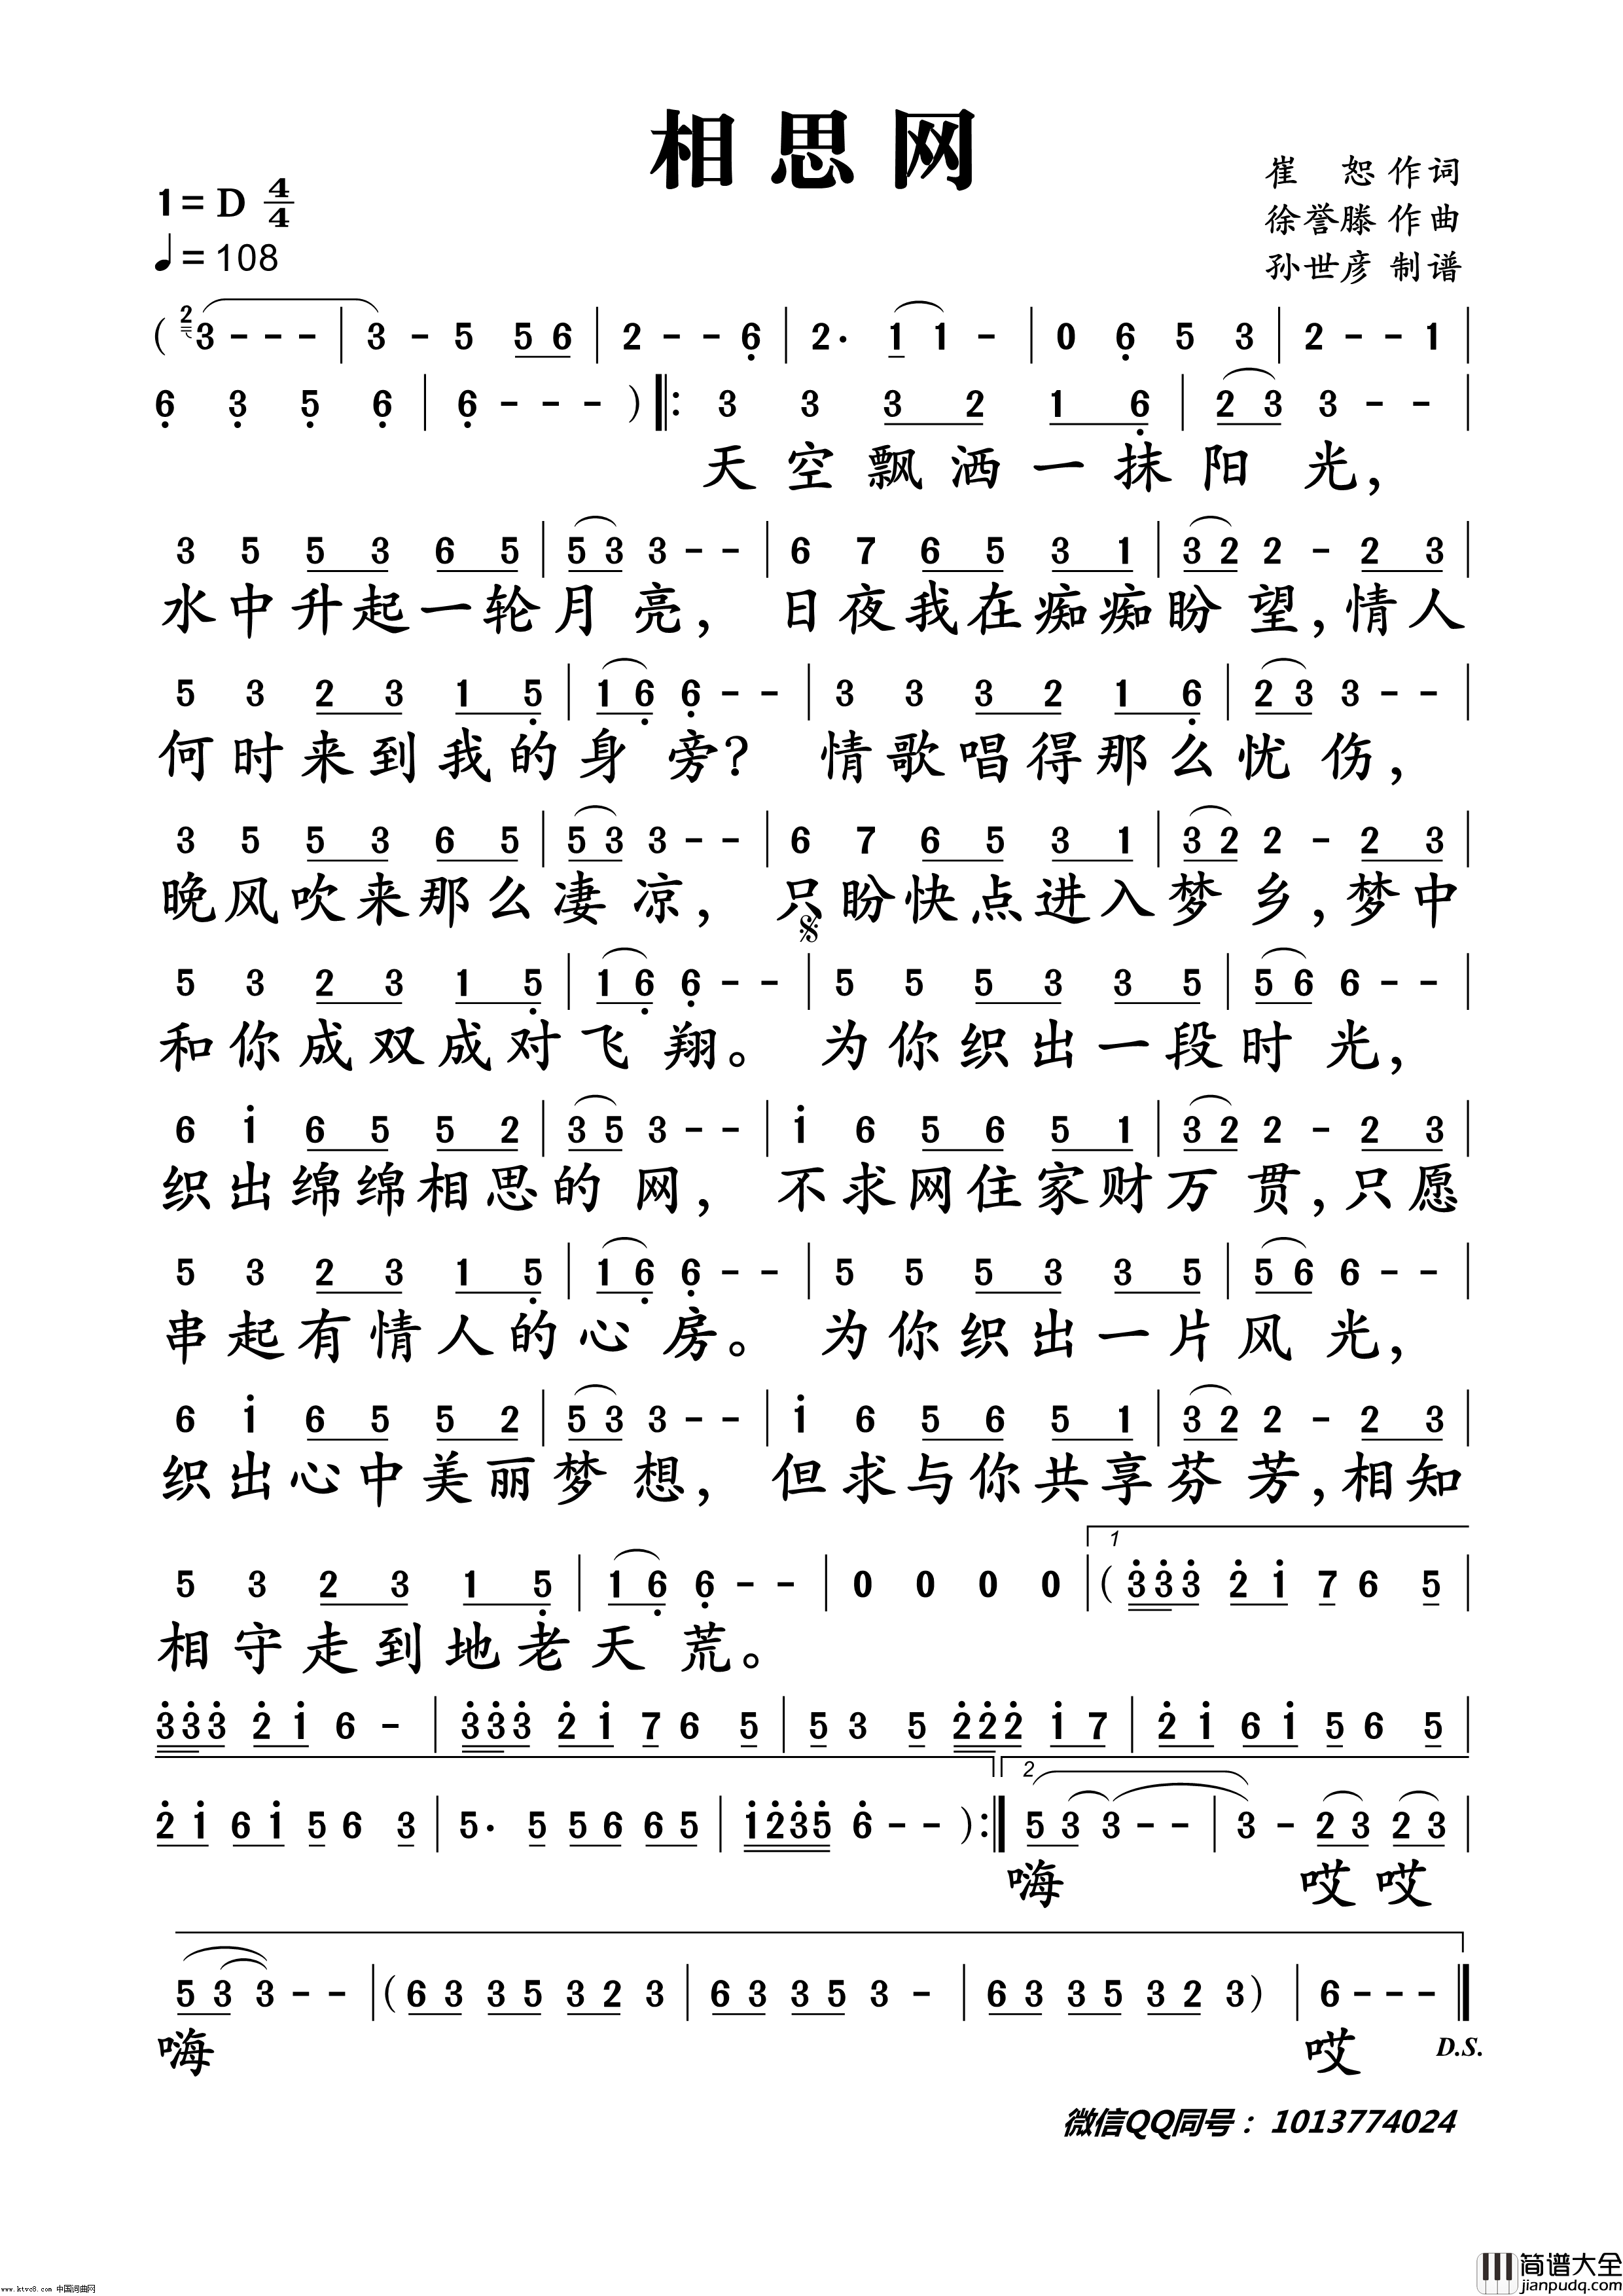 相思网
1=D 4/4
♩=108
崔 恕 作词
徐誉滕 作曲
孙世彦 制谱
( 2 3 - - - | 3 - 5 5 6 | 2 - - 6̣ | 2. 1 1 - | 0 6̣ 5 3 | 2 - - 1 |
6̣ 3̣ 5̣ 6̣ | 6̣ - - - ) ‖: 3 3 3 2 1 6̣ | 2 3 3 - - |
天空飘洒一抹阳光,
3 5 5 3 6 5 | 5 3 3 - - | 6 7 6 5 3 1 | 3 2 2 - 2 3 |
水中升起一轮月亮, 日夜我在痴痴盼望,情人
5 3 2 3 1 5̣ | 1 6̣ 6̣ - - | 3 3 3 2 1 6̣ | 2 3 3 - - |
何时来到我的身旁? 情歌唱得那么忧伤,
3 5 5 3 6 5 | 5 3 3 - - | 6 7 6 5 3 1 | 3 2 2 - 2 3 |
晚风吹来那么凄凉, 只盼快点进入梦乡,梦中
𝄋
5 3 2 3 1 5̣ | 1 6̣ 6̣ - - | 5 5 5 3 3 5 | 5 6 6 - - |
和你成双成对飞翔。 为你织出一段时光,
6 1̇ 6 5 5 2 | 3 5 3 - - | 1̇ 6 5 6 5 1 | 3 2 2 - 2 3 |
织出绵绵相思的网, 不求网住家财万贯,只愿
5 3 2 3 1 5̣ | 1 6̣ 6̣ - - | 5 5 5 3 3 5 | 5 6 6 - - |
串起有情人的心房。 为你织出一片风光,
6 1̇ 6 5 5 2 | 5 3 3 - - | 1̇ 6 5 6 5 1 | 3 2 2 - 2 3 |
织出心中美丽梦想, 但求与你共享芬芳,相知
1
5 3 2 3 1 5̣ | 1 6̣ 6̣ - - | 0 0 0 0 | ( 3̇ 3̇ 3̇ 2̇ 1̇ 7 6 5 |
相守走到地老天荒。
3̇ 3̇ 3̇ 2̇ 1̇ 6 - | 3̇ 3̇ 3̇ 2̇ 1̇ 7 6 5 | 5 3 5 2̇ 2̇ 2̇ 1̇ 7 | 2̇ 1̇ 6 1̇ 5 6 5 |
2
2̇ 1̇ 6 1̇ 5 6 3 | 5. 5 5 6 6 5 | 1̇ 2̇ 3̇ 5̇ 6̇ - - ) :‖ 5 3 3 - - | 3 - 2 3 2 3 |
嗨 哎哎
5 3 3 - - | ( 6 3 3 5 3 2 3 | 6 3 3 5 3 - | 6 3 3 5 3 2 3 ) | 6 - - - ‖
嗨 哎 D.S.
微信QQ同号: 1013774024
www.ktvc8.com 中国词曲网
简谱大全
jianpudq.com